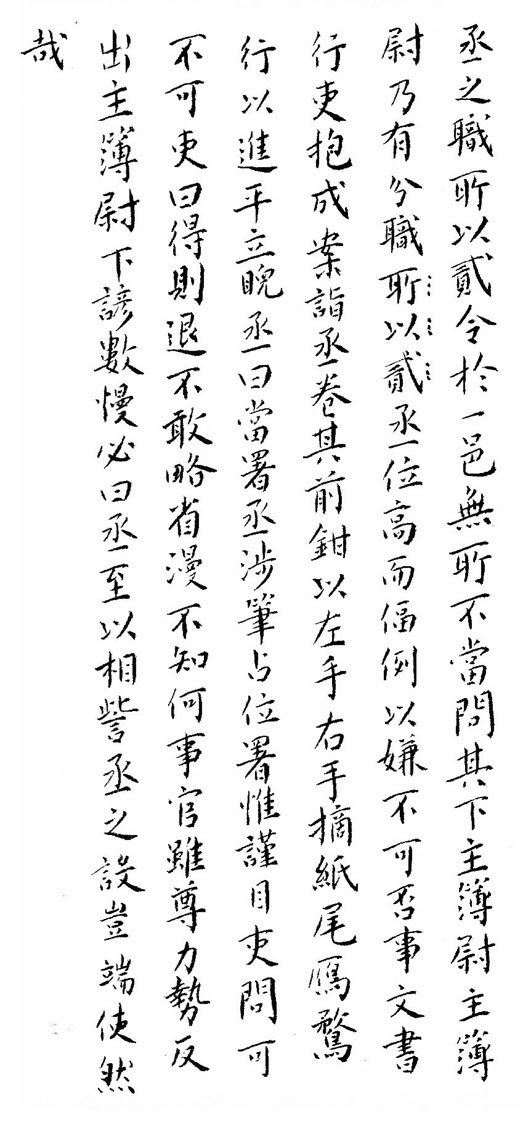 丞之職所以貳令於一邑無所不當問其下主簿尉主簿
尉乃有分職所以貳丞位高而偪例以嫌不可否事文書
行吏抱成案詣丞卷其前鉗以左手右手摘紙尾鴈鶩
行以進平立睨丞曰當署丞涉筆占位署惟謹目吏問可
不可吏曰得則退不敢略省漫不知何事官雖尊力勢反
出主簿尉下諺數慢必曰丞至以相訾丞之設豈端使然
哉